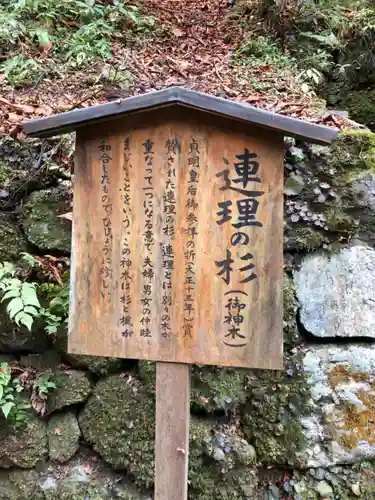 連理の杉（御神木）
貞明皇后御参拝の折（大正十三年）賞
賛された連理の杉。連理とは別々の木が
重なって一つになる意で、夫婦、男女の仲睦
まじいことをいう。この神木は杉と楓が
和合したもので、ひじょうに珍しい。